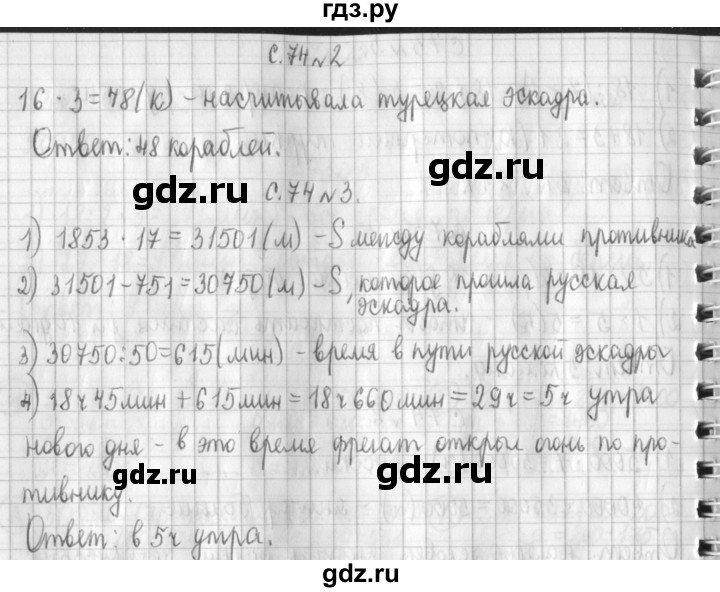 гдз.ру
с.74 №2
16 · 3 = 48(к) - насчитывала турецкая эскадра.
Ответ: 48 кораблей.
gdz.ru gdz.ru
с.74 №3.
1) 1853 · 17 = 31501(м) - S между кораблями противника
2) 31501-751=30750(м) - S, которое прошла русская
эскадра.
3) 30750:50=615(мин) - время в пути русской эскадры
4) 18ч45мин + 615мин = 18ч660мин = 29ч = 5ч утра
нового дня - в это время фрегат открыл огонь по про-
gdz.ru gdz.ru
тивнику.
Ответ: в 5ч утра.
gdz.ru